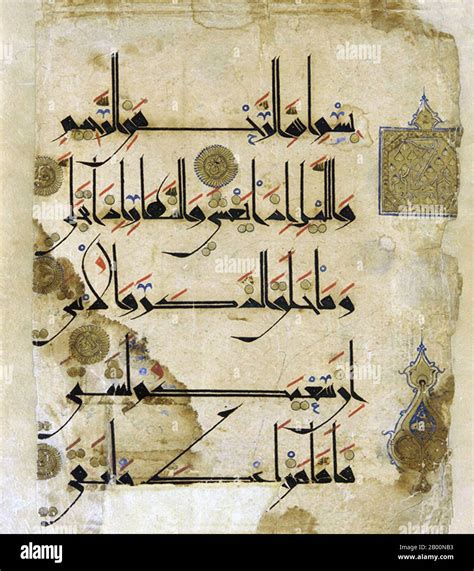 بسم الله الرحمن الرحيم
والليل اذا يغشى والنهار اذا تجلى
وما خلق الذكر والانثى
ان سعيكم لشتى
فاما من اعطى واتقى
alamy
Image ID: 2B00NB3
www.alamy.com